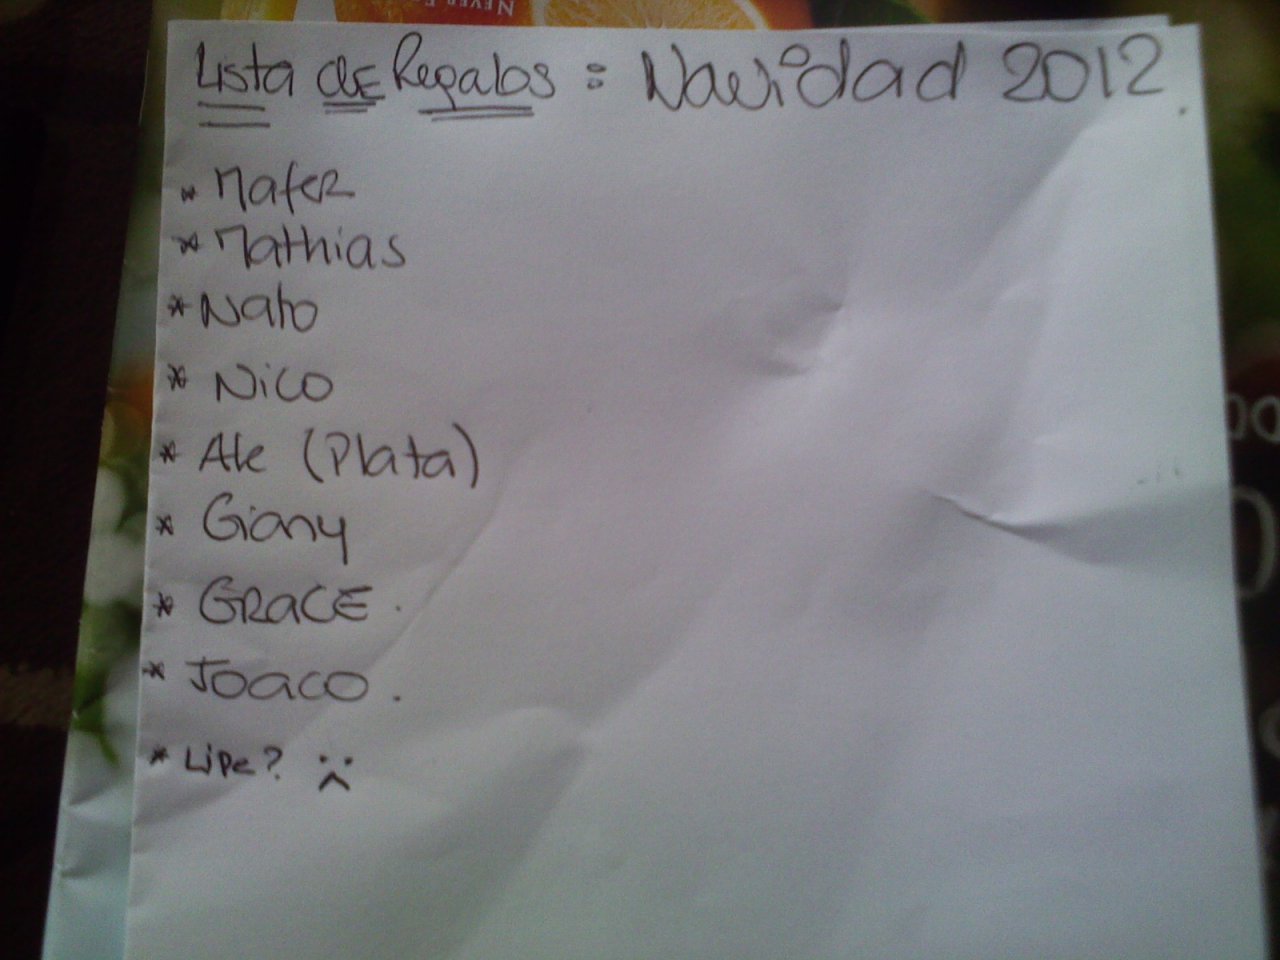 NEVER F
Lista de Regalos : Navidad 2012.
* Mafer
* Mathias
* Nato
* Nico
* Ale (Plata)
* Giany
* GRACE.
* Joaco.
* Lipe? :(